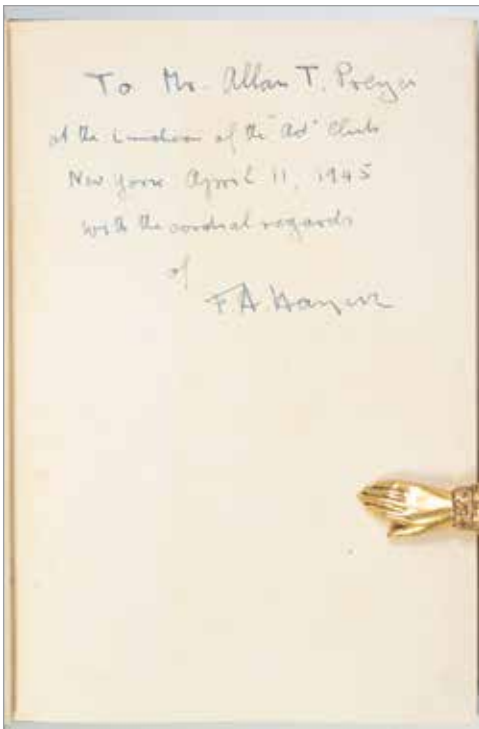 To Mr. Allan T. Preyer
at the Luncheon of the "Ad" Club
New York April 11, 1945
with the cordial regards
of
F.A. Hayek